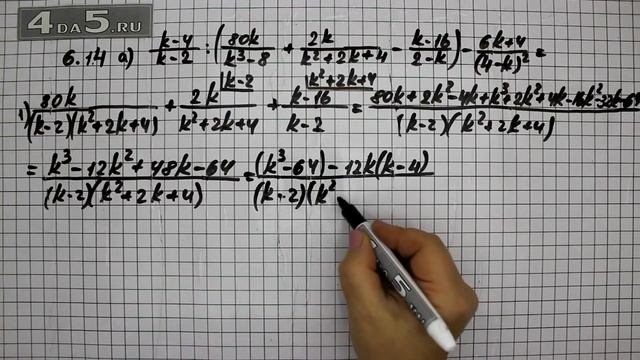 4DA5.RU
6.14 a) \frac{k-4}{k-2} : \left( \frac{80k}{k^3-8} + \frac{2k}{k^2+2k+4} - \frac{k-16}{2-k} \right) - \frac{6k+4}{(4-k)^2} =
1) \frac{80k}{(k-2)(k^2+2k+4)} + \frac{2k^{|k-2}}{k^2+2k+4} + \frac{k-16^{|k^2+2k+4}}{k-2} = \frac{80k+2k^2-4k+k^3+2k^2+4k-16k^2-32k-64}{(k-2)(k^2+2k+4)}
= \frac{k^3-12k^2+48k-64}{(k-2)(k^2+2k+4)} = \frac{(k^3-64)-12k(k-4)}{(k-2)(k^2}